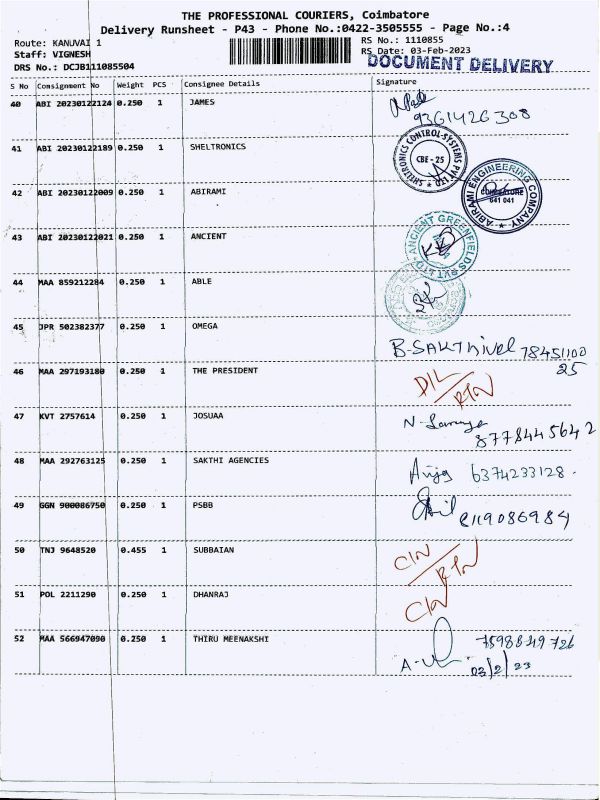 THE PROFESSIONAL COURIERS, Coimbatore
Delivery Runsheet - P43 - Phone No.:0422-3505555 - Page No.:4
Route: KANUVAI 1 RS No.: 1110855
Staff: VIGNESH RS Date: 03-Feb-2023
DRS No.: DCJB111085504 DOCUMENT DELIVERY
S No Consignment No Weight PCS Consignee Details Signature
40 ABI 20230122124 0.250 1 JAMES
9361426308
41 ABI 20230122189 0.250 1 SHELTRONICS SHELTRONICS CONTROL SYSTEMS PVT LTD CBE - 25
42 ABI 20230122009 0.250 1 ABIRAMI ABIRAMI ENGINEERING COMPANY COIMBATORE 641 041
43 ABI 20230122021 0.250 1 ANCIENT ANCIENT GREENFIELDS PVT LTD
44 MAA 859212284 0.250 1 ABLE
45 JPR 502382377 0.250 1 OMEGA
B-SAKTHivel 7845110025
46 MAA 297193180 0.250 1 THE PRESIDENT D/L RTN
47 KVT 2757614 0.250 1 JOSUAA
8778445642
48 MAA 292763125 0.250 1 SAKTHI AGENCIES
6374233128.
49 GGN 900086750 0.250 1 PSBB
8119086984
50 TNJ 9648520 0.455 1 SUBBAIAN C/N RTN
51 POL 2211290 0.250 1 DHANRAJ C/N
52 MAA 566947090 0.250 1 THIRU MEENAKSHI 7598849726
03/2/23